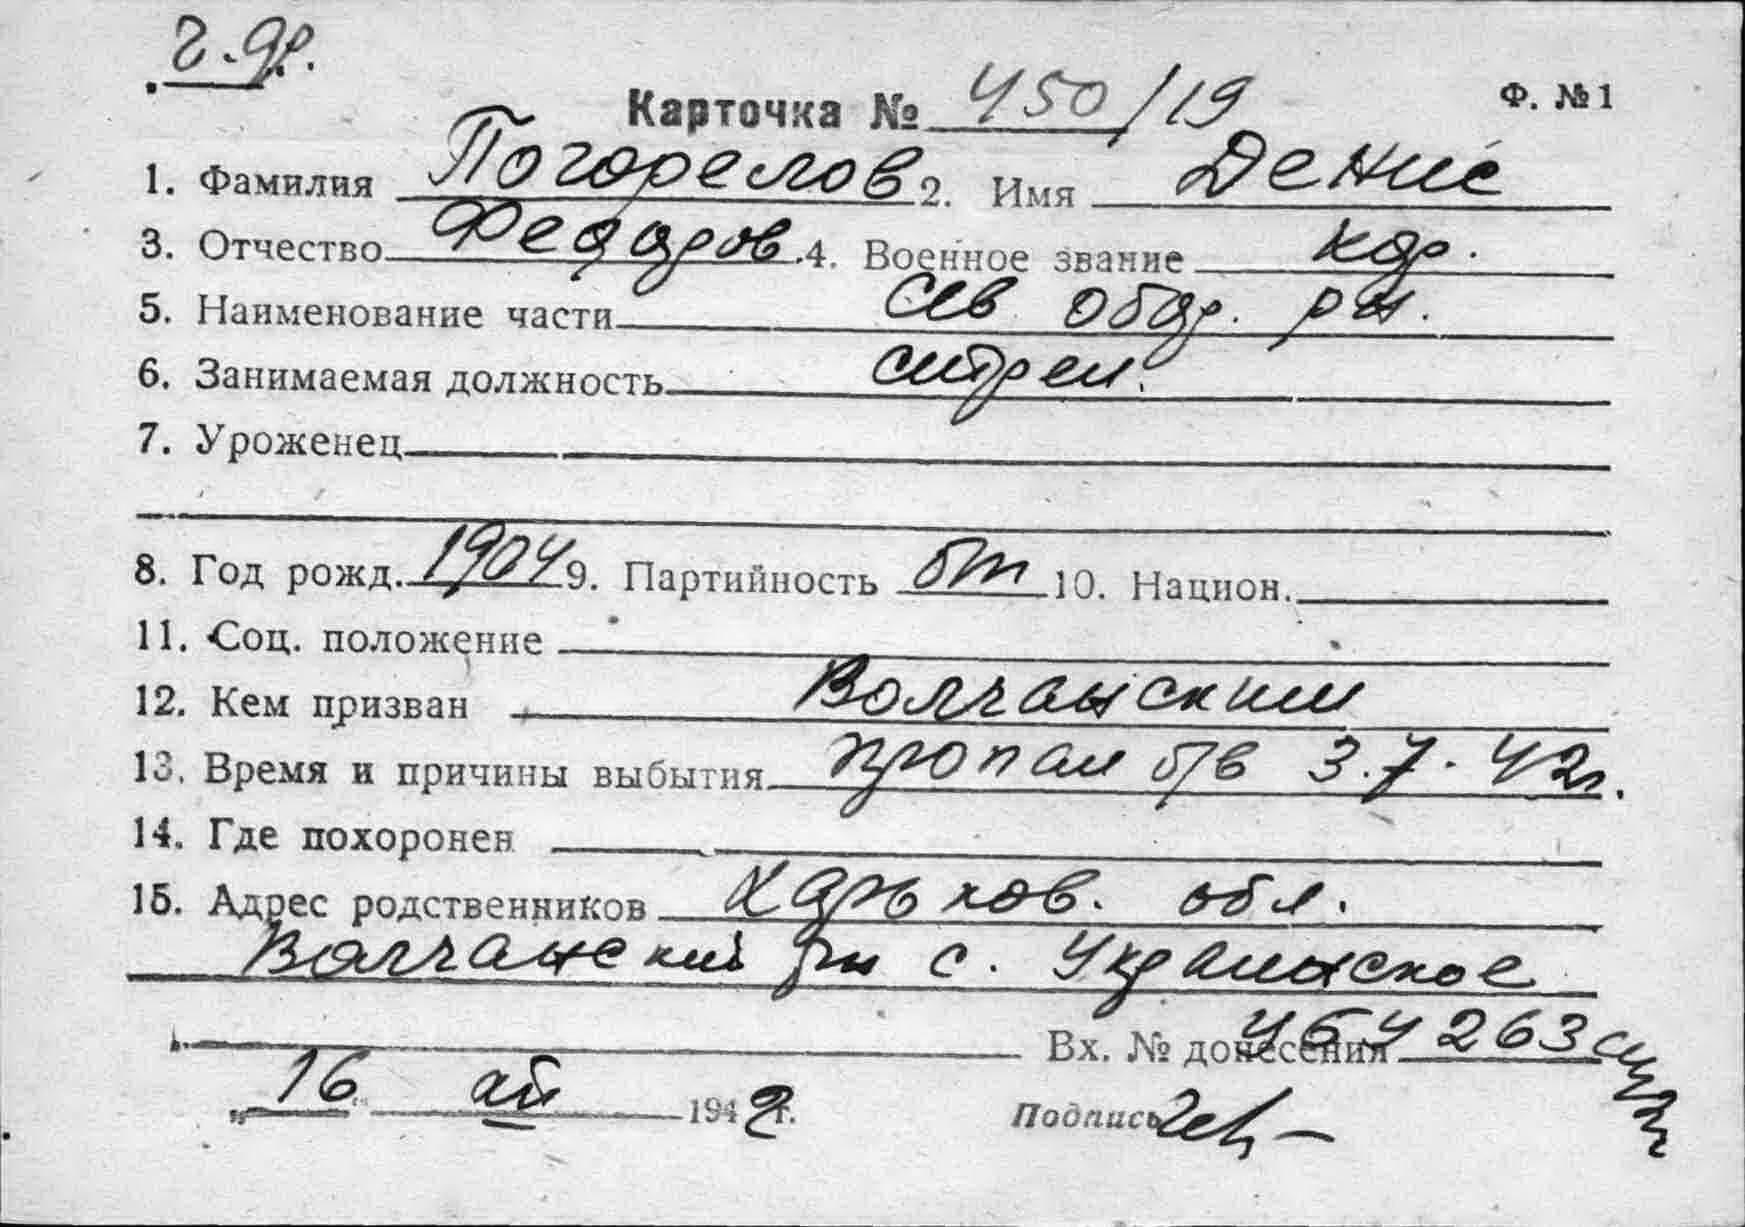 Карточка № 450/19 Ф. №1
1. Фамилия Погорелов 2. Имя Денис
3. Отчество Федоров. 4. Военное звание кр.
5. Наименование части рн.
6. Занимаемая должность стрел.
7. Уроженец
8. Год рожд. 1904 9. Партийность б/п 10. Национ.
11. Соц. положение
12. Кем призван Волчанским
13. Время и причины выбытия пропал б/в 3.7.42г.
14. Где похоронен
15. Адрес родственников Харьков. обл.
Волчанский рн с. Украинское
Вх. № донесения 263
„16" 1942г. Подпись